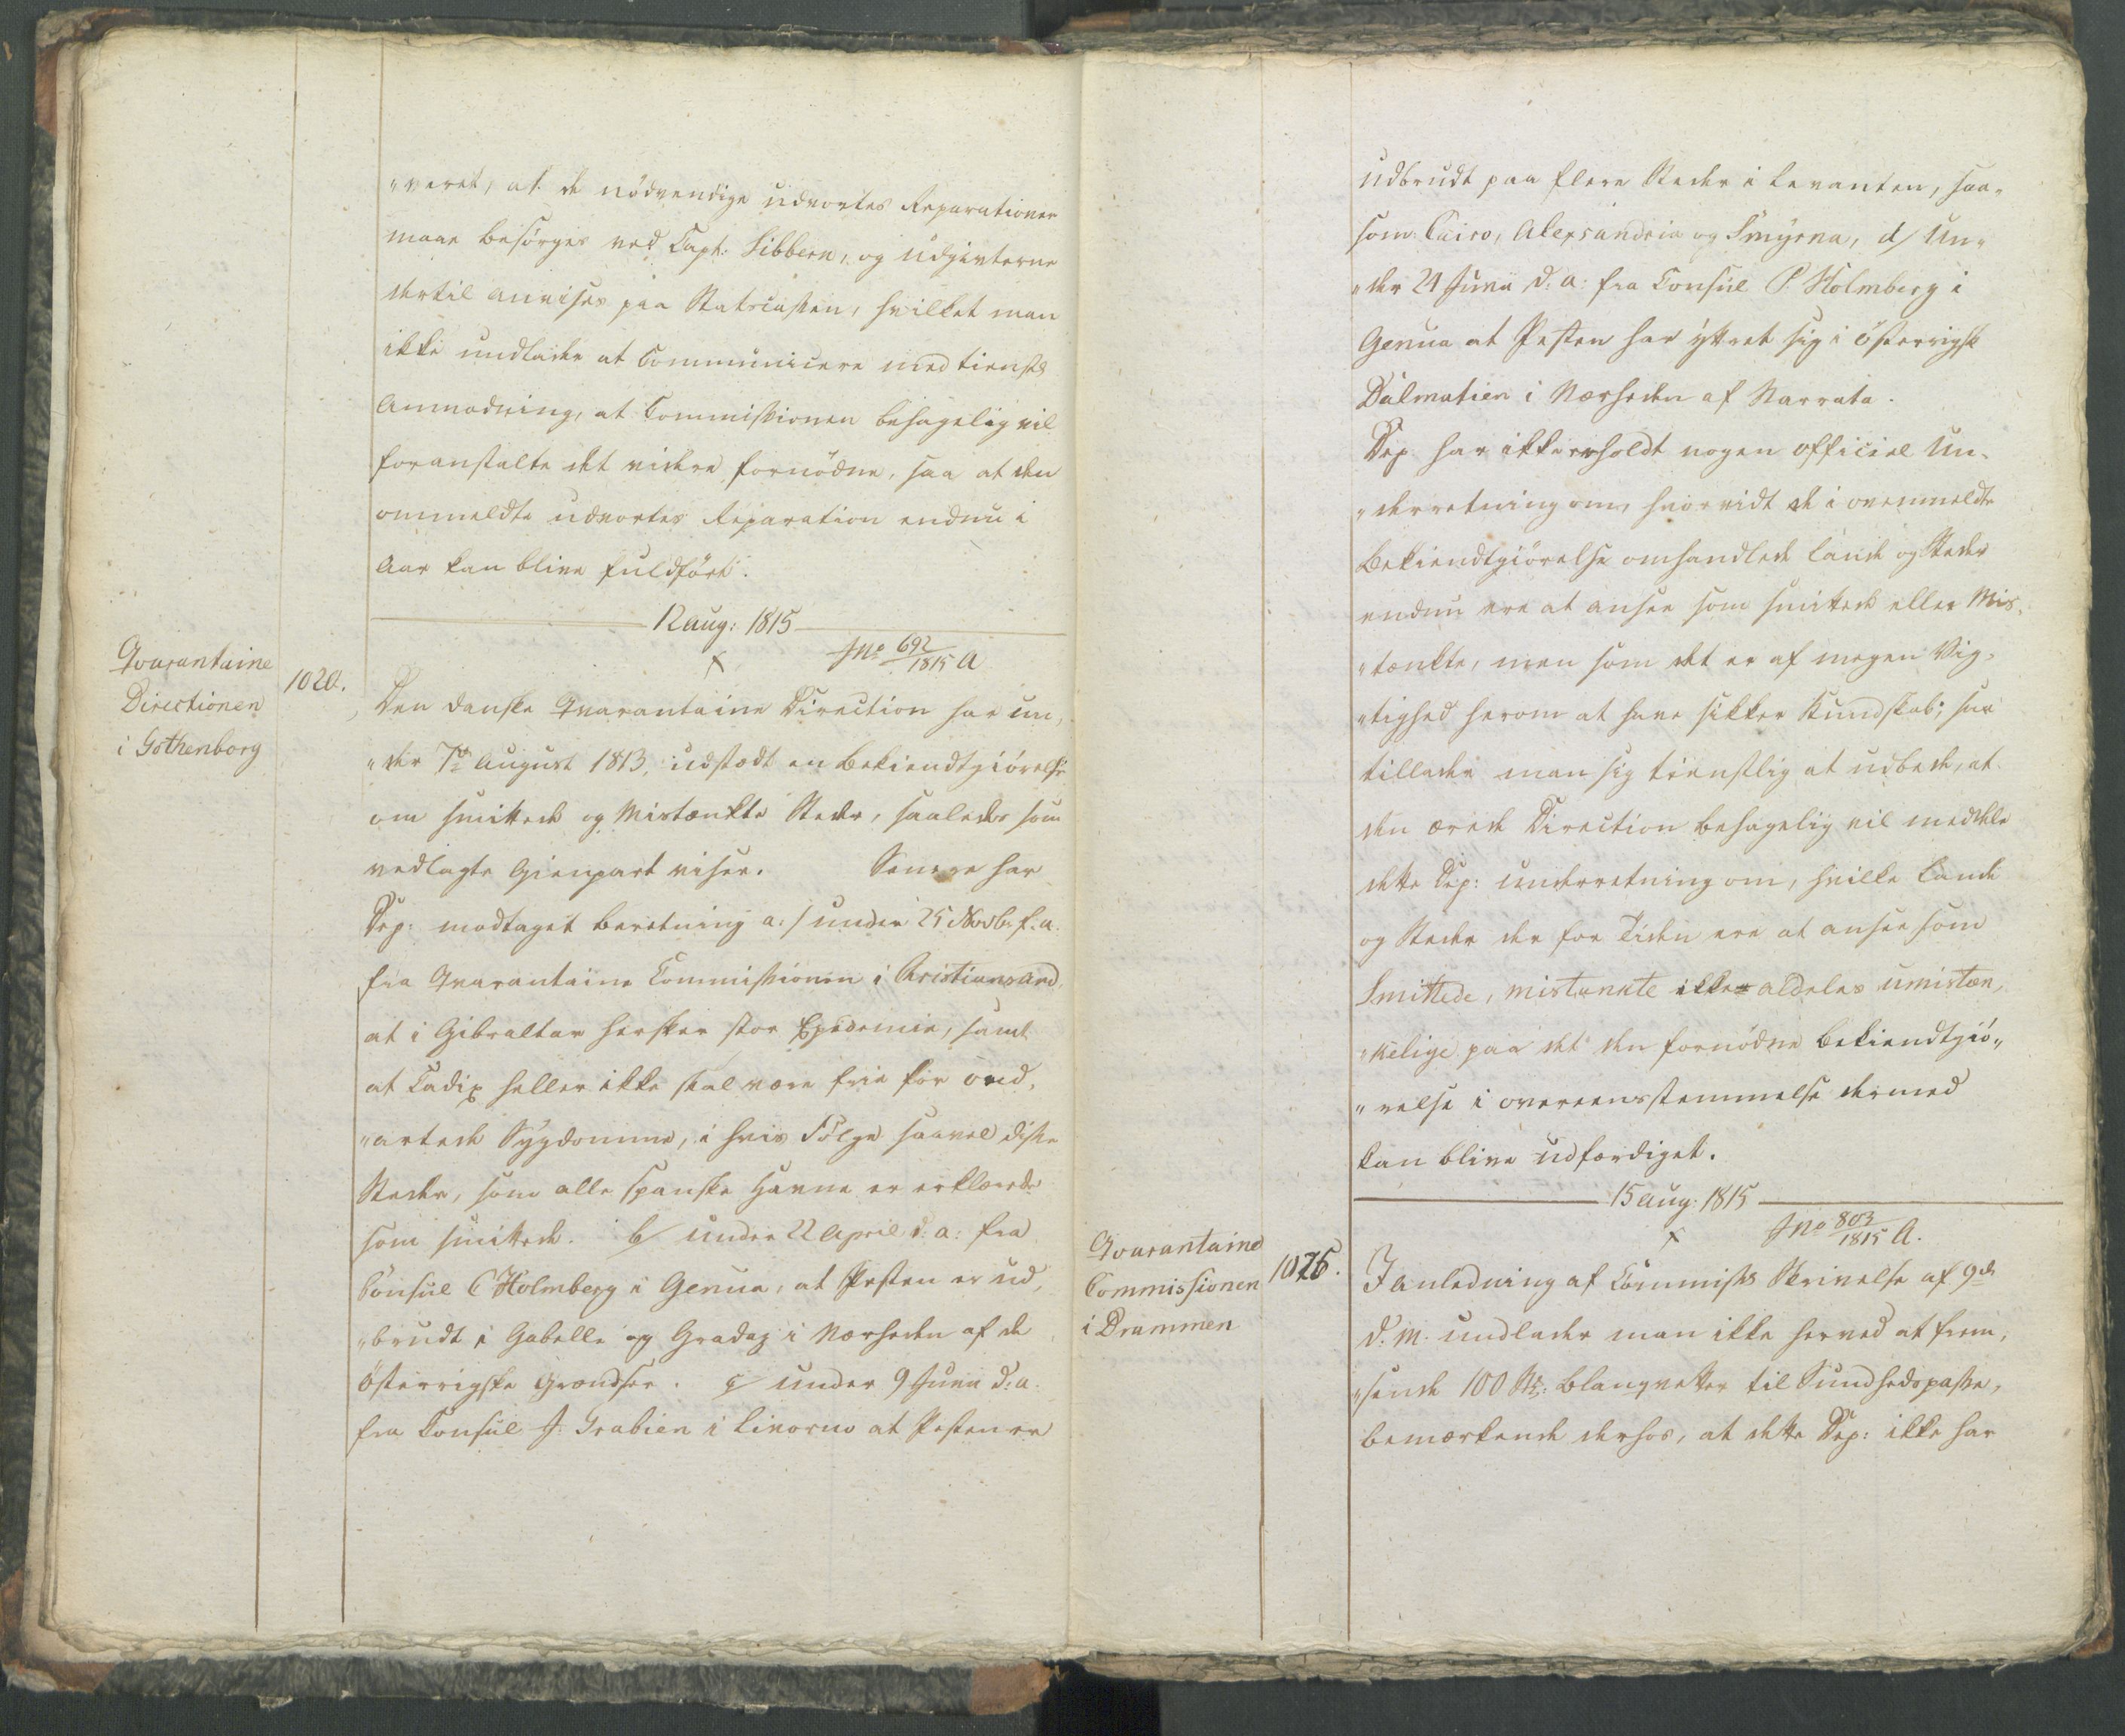 „veret, at de nödvendige udvortes Reparationer
maae besörges ved Capt: Sibbern, og udgivterne
dertil anvises paa Statscassen, hvilket man
ikke undlader at Communicere med tienstl
Anmodning, at Commissionen behagelig vil
foranstalte det videre fornödne, saa at den
ommeldte udvortes Reparation endnu i
Aar kan blive fuldfört.
12 aug: 1815
Jno 692/1815 A
Qvarantaine
Directionen
i Gothenborg
1020.
Den danske Qvarantaine Direction har un„
„der 7de August 1813, udstædt en Bekiendtgiörelse
om smittede og Mistænkte Steder, saaledes som
vedlagte Gienpart viser. Senere har
Dep: modtaget Beretning a:/ under 25 Novbr f. a.
fra Qvarantaine Commissionen i Christiansand,
at i Gibraltar hersker stor Epidemie, samt
at Cadix heller ikke skal være frie for ond„
„artede Sygdomme, i hvis Fölge saavel disse
Steder, som alle spanske Havne er erklærede
som smittede. b/ under 22 April d: a: fra
Consul C Holmberg i Genua, at Pesten er ud„
„brudt i Gabelle og Gradaz i Nærheden af de
österrigske Grændser. c/ under 9 Juni d: a.
fra Consul J. Grabien i Livorno at Pesten er
udbrudt paa flere Steder i Levanten, saa„
som: Cairo, Alexsandria og Smyrna, d/ Un„
„der 24 Junii d: a: fra Consul P Holmberg i
Genua at Pesten har yttret sig i österrigsk
Dalmatien i Nærheden af Narrata.
Dep har ikke erholdt nogen officiel Un„
„derretning om, hvorvidt de i ovenmeldte
Bekiendtgiörelse omhandlede Lande og Steder
endnu ere at ansee som smittede eller Mis„
„tænkte, men som det er af megen Vig„
„tighed herom at have sikker Kundskab; saa
tillader man sig tienstlig at udbede, at
den ærede Direction behagelig vil meddele
dette Dep: underretning om, hvilke Lande
og Steder der for Tiden ere at ansee som
Smittede, mistænkte ikke aldeles umistæn„
„kelige paa det den fornödne Bekiendtgiö„
„relse i overeensstemmelse dermed
kan blive udfærdiget.
15 aug: 1815
Jno 803/1815 A.
Qvarantaine
Commissionen
i Drammen
1026.
I anledning af Commiss Skrivelse af 9de
d. M. undlader man ikke herved at frem„
„sende 100 St: blanqvetter til Sundhedspasse,
bemærkende derhos, at dette Dep: ikke har